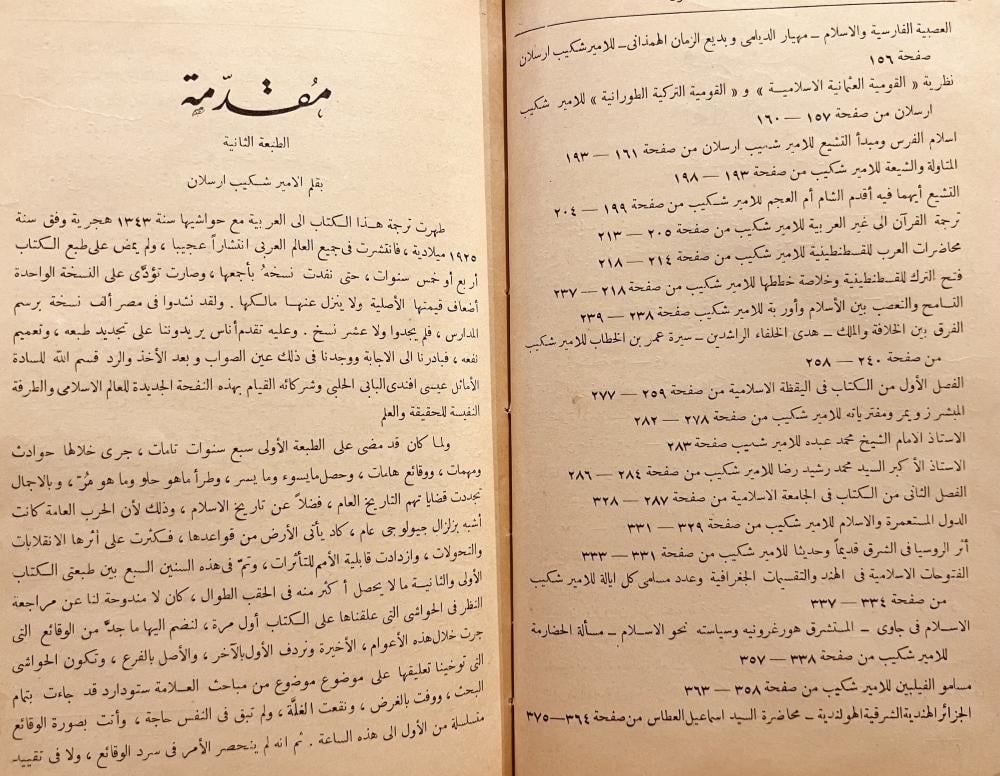 العصبية الفارسية والاسلام ــ مهيار الديلمى وبديع الزمان الهمذانى ــ للامير شكيب ارسلان
صفحة ١٥٦
نظرية « القومية العثمانية الاسلامية » و « القومية التركية الطورانية » للامير شكيب
ارسلان من صفحة ١٥٧ — ١٦٠
اسلام الفرس ومبدأ التشيع للامير شكيب ارسلان من صفحة ١٦١ — ١٩٣
المتاولة والشيعة للامير شكيب من صفحة ١٩٣ — ١٩٨
التشيع أيهما فيه أقدم الشام أم العجم للامير شكيب من صفحة ١٩٩ — ٢٠٤
ترجمة القرآن الى غير العربية للامير شكيب من صفحة ٢٠٥ — ٢١٣
محاضرات العرب للقسطنطينية للامير شكيب من صفحة ٢١٤ — ٢١٨
فتح الترك للقسطنطينية وخلاصة خططها للامير شكيب من صفحة ٢١٨ — ٢٣٧
التسامح والتعصب بين الأسلام وأوربة للامير شكيب صفحة ٢٣٨ — ٢٣٩
الفرق بين الخلافة والملك ــ هدى الخلفاء الراشدين ــ سيرة عمر بن الخطاب للامير شكيب
من صفحة ٢٤٠ — ٢٥٨
الفصل الأول من الكتاب فى اليقظة الاسلامية من صفحة ٢٥٩ — ٢٧٧
المبشر زويمر ومفترياته للامير شكيب من صفحة ٢٧٨ — ٢٨٢
الاستاذ الامام الشيخ محمد عبده للامير شكيب صفحة ٢٨٣
الاستاذ الأكبر السيد محمد رشيد رضا للامير شكيب من صفحة ٢٨٤ — ٢٨٦
الفصل الثانى من الكتاب فى الجامعة الاسلامية من صفحة ٢٨٧ — ٣٢٨
الدول المستعمرة والاسلام للامير شكيب من صفحة ٣٢٩ — ٣٣١
أثر الروسيا فى الشرق قديماً وحديثا للامير شكيب من صفحة ٣٣١ — ٣٣٣
الفتوحات الاسلامية فى الهند والتقسيمات الجغرافية وعدد مسلمى كل ايالة للامير شكيب
من صفحة ٣٣٤ — ٣٣٧
الاسلام فى جاوى ــ المستشرق هورغرونيه وسياسته نحو الاسلام ــ مسألة الحضارمة
للامير شكيب من صفحة ٣٣٨ — ٣٥٧
مسلمو الفيليبين للامير شكيب من صفحة ٣٥٨ — ٣٦٣
الجزائر الهندية الشرقية الهولندية ــ محاضرة السيد اسماعيل العطاس من صفحة ٣٦٤ — ٣٧٥
مقدّمة
الطبعة الثانية
بقلم الامير شكيب ارسلان
ظهرت ترجمة هذا الكتاب الى العربية مع حواشيها سنة ١٣٤٣ هجرية وفق سنة
١٩٢٥ ميلادية ، فانتشرت فى جميع العالم العربى انتشاراً عجيبا ، ولم يمض على طبع الكتاب
أربع أو خمس سنوات ، حتى نفدت نسخهُ بأجمعها ، وصارت تؤدَّى على النسخة الواحدة
أضعاف قيمتها الأصلية ولا ينزل عنها مالكها . ولقد نشدوا فى مصر ألف نسخة برسم
المدارس ، فلم يجدوا ولا عشر نسخ . وعليه تقدم أناس يريدوننا على تجديد طبعه ، وتعميم
نفعه ، فبادرنا الى الاجابة ووجدنا فى ذلك عين الصواب وبعد الأخذ والرد قسم الله للسادة
الأماثل عيسى افندى البابى الحلبى وشركائه القيام بهذه النفحة الجديدة للعالم الاسلامى والطرفة
النفيسة للحقيقة والعلم
ولما كان قد مضى على الطبعة الأولى سبع سنوات تامات ، جرى خلالها حوادث
ومهمات ، ووقائع هامات ، وحصل مايسوء وما يسر ، وطرأ ماهو حلو وما هو مُرّ ، وبالاجمال
تجددت قضايا تهم التاريخ العام ، فضلاً عن تاريخ الاسلام ، وذلك لأن الحرب العامة كانت
أشبه بزلزال جيولوجى عام ، كاد يأتى الأرض من قواعدها ، فكثرت على أثرها الانقلابات
والتحولات ، وازدادت قابلية الأمم للتأثرات ، وتمّ فى هذه السنين السبع بين طبعتى الكتاب
الأولى والثانية ما لا يحصل أكثر منه فى الحقب الطوال ، كان لا مندوحة لنا عن مراجعة
النظر فى الحواشى التى علقناها على الكتاب أول مرة ، لنضم اليها ما جدّ من الوقائع التى
جرت خلال هذه الأعوام ، الأخيرة ونردف الأول بالآخر ، والأصل بالفرع ، وتكون الحواشى
التى توخينا تعليقها على موضوع موضوع من مباحث العلامة ستودارد قد جاءت بتمام
البحث ، ووفت بالغرض ، ونقعت الغلّة ، ولم تبق فى النفس حاجة ، وأتت بصورة الوقائع
متسلسلة من الأول الى هذه الساعة . ثم انه لم ينحصر الأمر فى سرد الوقائع ، ولا فى تقييد